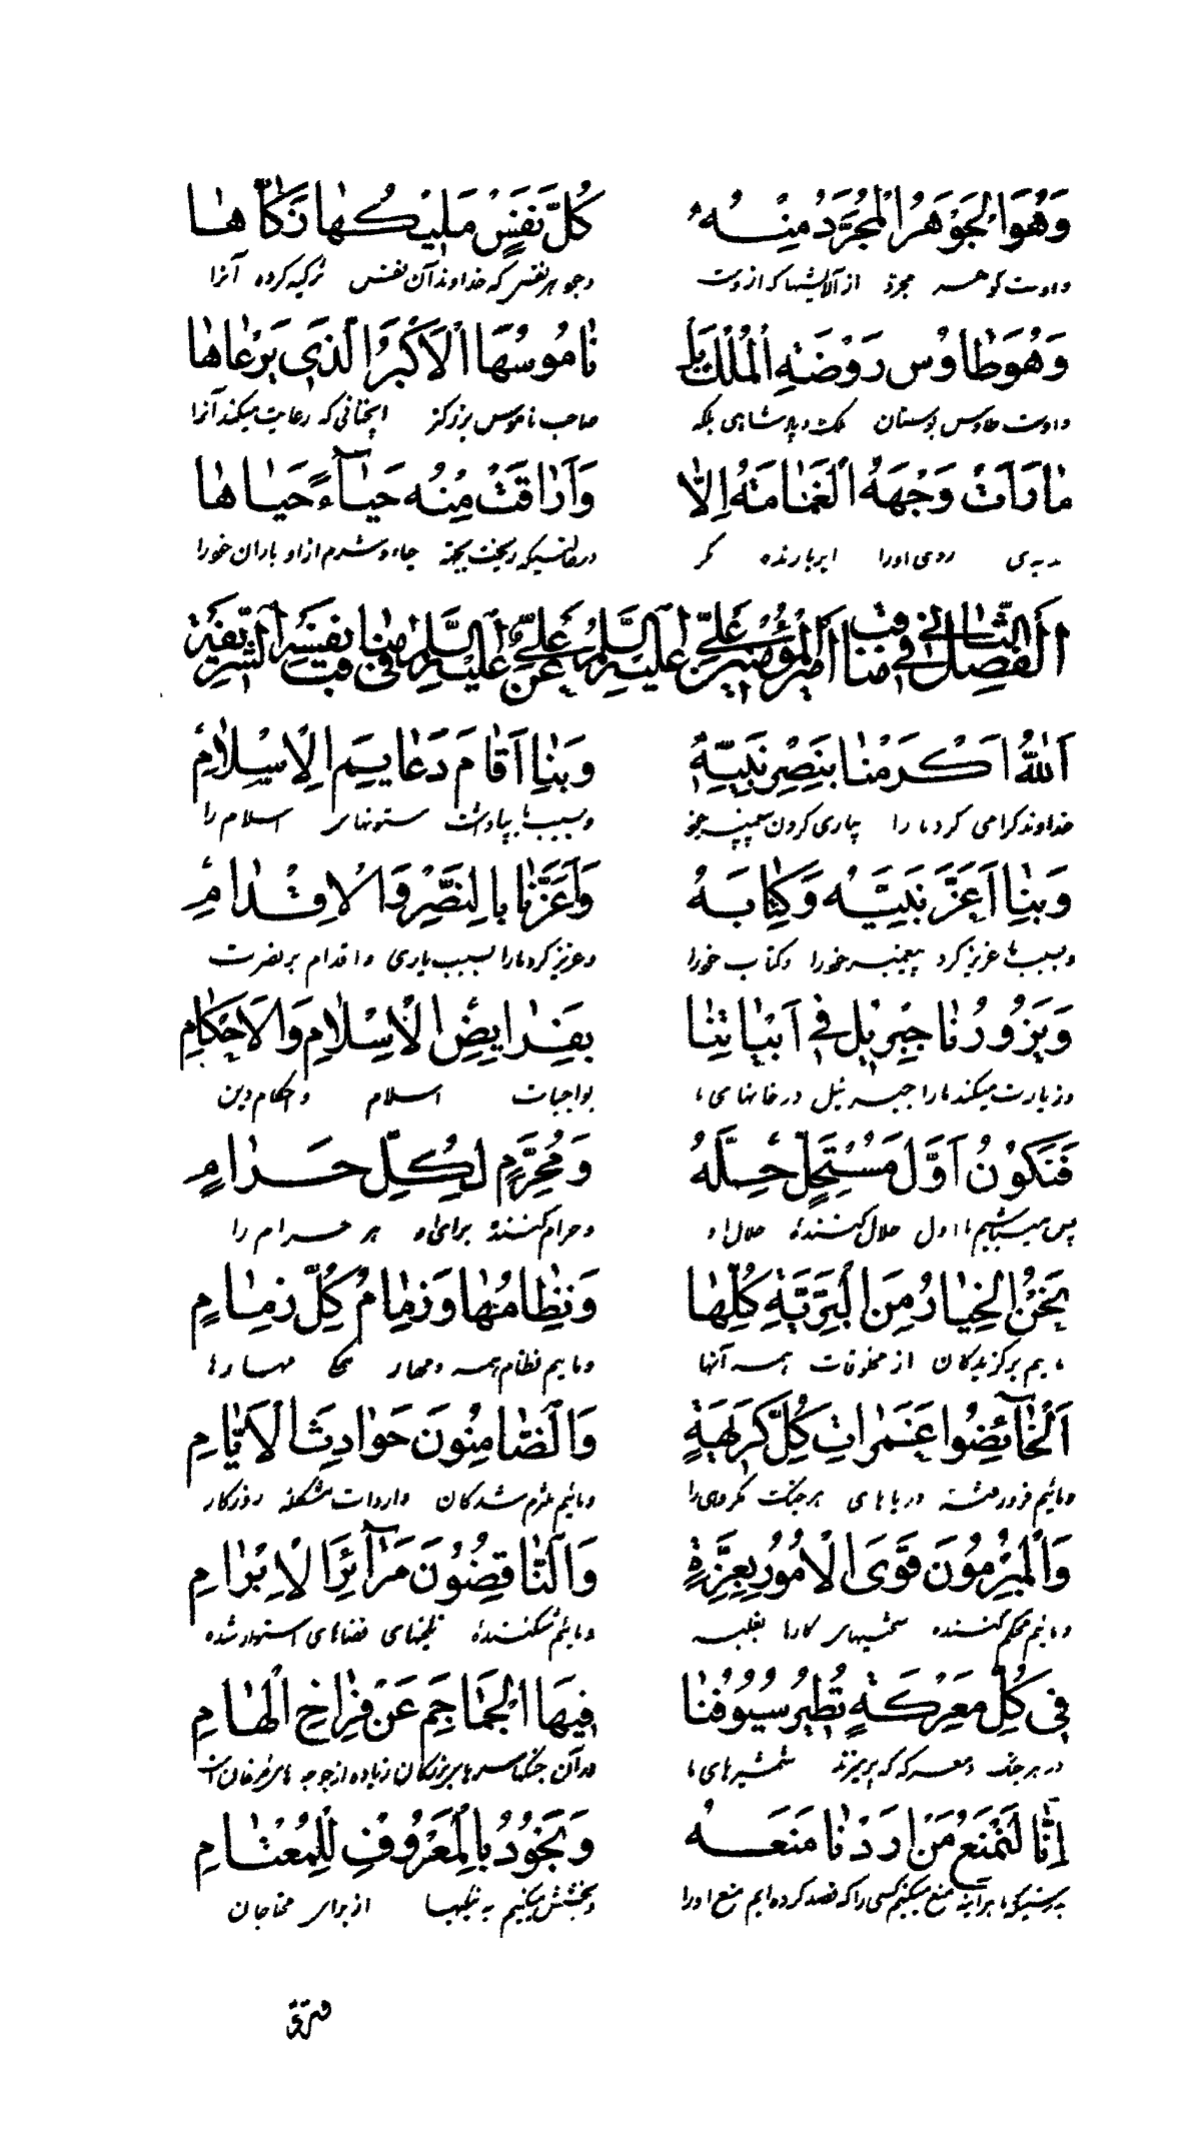 وَهُوَ الْجَوْهَرُ الْمُجَرَّدُ مِنْهُ كُلُّ نَفْسٍ مَلِيكُهَا زَكَّاهَا
مجرد از آلایشها که از وست که خداوند آن نفس تزکیه کرده آنرا
وَهُوَ طَاوُسُ رَوْضَةِ الْمُلْكِ بَلْ نَامُوسُهَا الْأَكْبَرُ الَّذِي يَرْعَاهَا
و اوست طاوس بوستان ملک و پادشاهی بلکه صاحب ناموس بزرگتر که رعایت میکند آنرا
مَا رَأَتْ وَجْهَهُ الْغَمَامَةُ إِلَّا وَأَرَاقَتْ مِنْهُ حَيَاءً حَيَاهَا
روی او را ابر بارنده مگر شرم از او باران خود را
اَلْفَصْلُ الثَّانِي فِي مَنَاقِبِ أَمِيرِ الْمُؤْمِنِينَ عَلِيٍّ عَلَيْهِ السَّلَامُ عَنْ عَلِيٍّ عَلَيْهِ السَّلَامُ فِي مَنَاقِبِ نَفْسِهِ الشَّرِيفَةِ
اَللّٰهُ اَكْرَمَنَا بِنَصْرِ نَبِيِّهِ وَبِنَا اَقَامَ دَعَايِمَ الْاِسْلَامِ
خداوند گرامی کرد ما را بیاری کردن پیغمبر خود و بسبب ما بپا داشت ستونهای اسلام را
وَبِنَا اَعَزَّ نَبِيَّهُ وَكِتَابَهُ وَاَعَزَّنَا بِالنَّصْرِ وَالْاِقْدَامِ
و بسبب ما عزیز کرد پیغمبر خود را و کتاب خود را و عزیز کرد ما را بسبب یاری و اقدام بر نصرت
وَيَزُورُنَا جِبْرِيْلُ فِي اَبْيَاتِنَا بِفَرَايِضِ الْاِسْلَامِ وَالْاَحْكَامِ
و زیارت میکند ما را جبرئیل در خانهای ما بواجبات اسلام و احکام دین
فَنَكُوْنُ اَوَّلَ مُسْتَحِلٍّ حِلَّهُ وَمُحَرِّمٍ لِكُلِّ حَرَامٍ
پس میباشیم ما اول حلال کننده حلال او و حرام کننده هر حرام را
نَحْنُ الْخِيَارُ مِنَ الْبَرِيَّةِ كُلِّهَا وَنِظَامُهَا وَزِمَامُ كُلِّ زِمَامٍ
مائیم برگزیدگان از مخلوقات همه آنها و مائیم نظام همه و مهار همه مهارها
اَلْخَائِضُوا غَمَرَاتِ كُلِّ كَرِيْهَةٍ وَالضَّامِنُونَ حَوَادِثَ الْاَيَّامِ
و مائیم فرو رفته دریاهای هر جنگ مکروهی را و مائیم ملتزم شدگان واردات مشکله روزگار
وَالْمُبْرِمُونَ قُوَى الْاُمُورِ بِعِزَّةٍ وَالنَّاقِضُونَ مَرَائِرَ الْاِبْرَامِ
و مائیم محکم کننده کارها بغلبه و مائیم شکننده استوار شده
فِي كُلِّ مَعْرَكَةٍ تُطِيرُ سُيُوفُنَا فِيهَا الْجَمَاجِمَ عَنْ فِرَاخِ الْهَامِ
در هر جنگ و معرکه که شمشیرهای ما در آن جنگها
اِنَّا لَنَمْنَعُ مَنْ اَرَدْنَا مَنْعَهُ وَنَجُوْدُ بِالْمَعْرُوفِ لِلْمُعْتَامِ
منع میکنیم کسی را که قصد کرده ایم منع او را و بخشش میکنیم به نیکیها از برای محتاجان